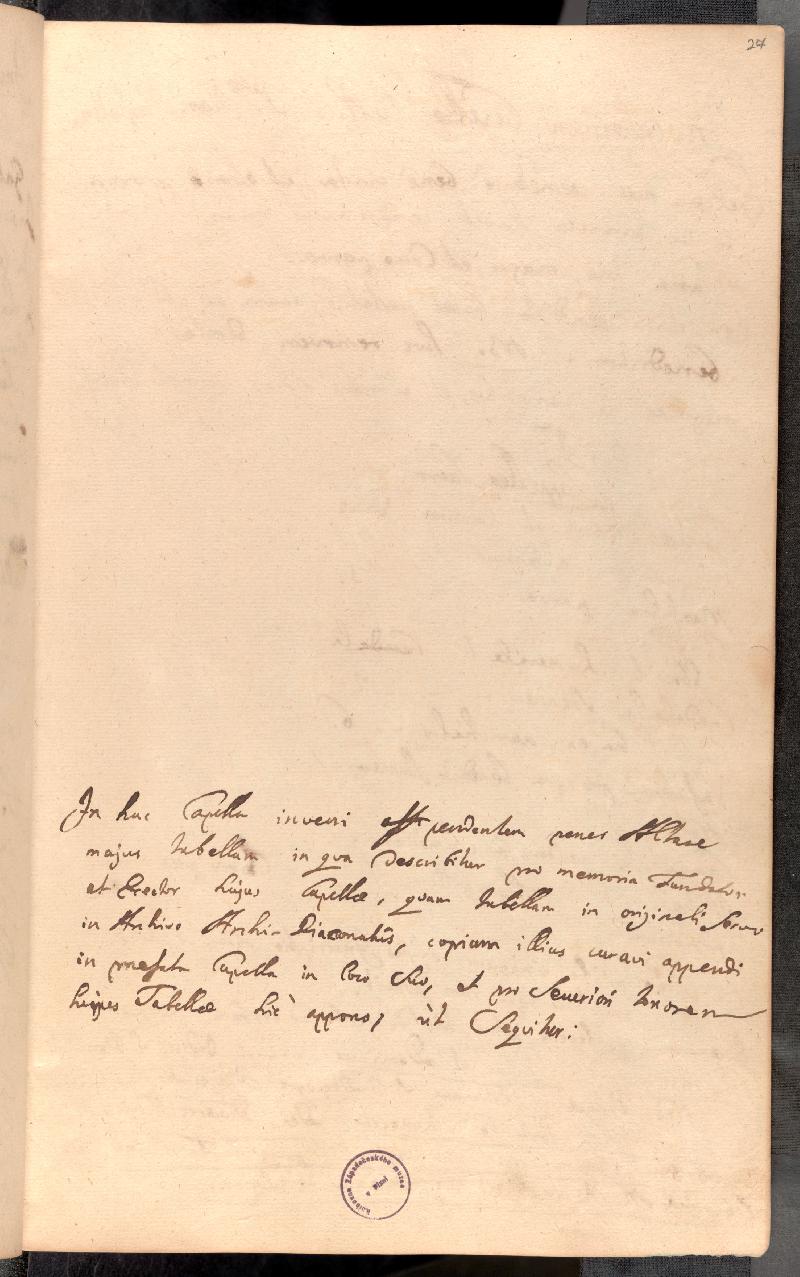 27
In hac Capella inveni pendentem penes Altare
majus tabellam in qva describitur pro memoria Fundator
et Erector hujus Capellæ, quam tabellam in originali servo
in Archivo Archi-Diaconatûs, copiam illius curavi appendi
in præfata Capella in loco suo, et pro Seueriori tenorem
hujus Tabellæ hic appono, ùt Sequitur:
Knihovna Západočeského muzea v Plzni